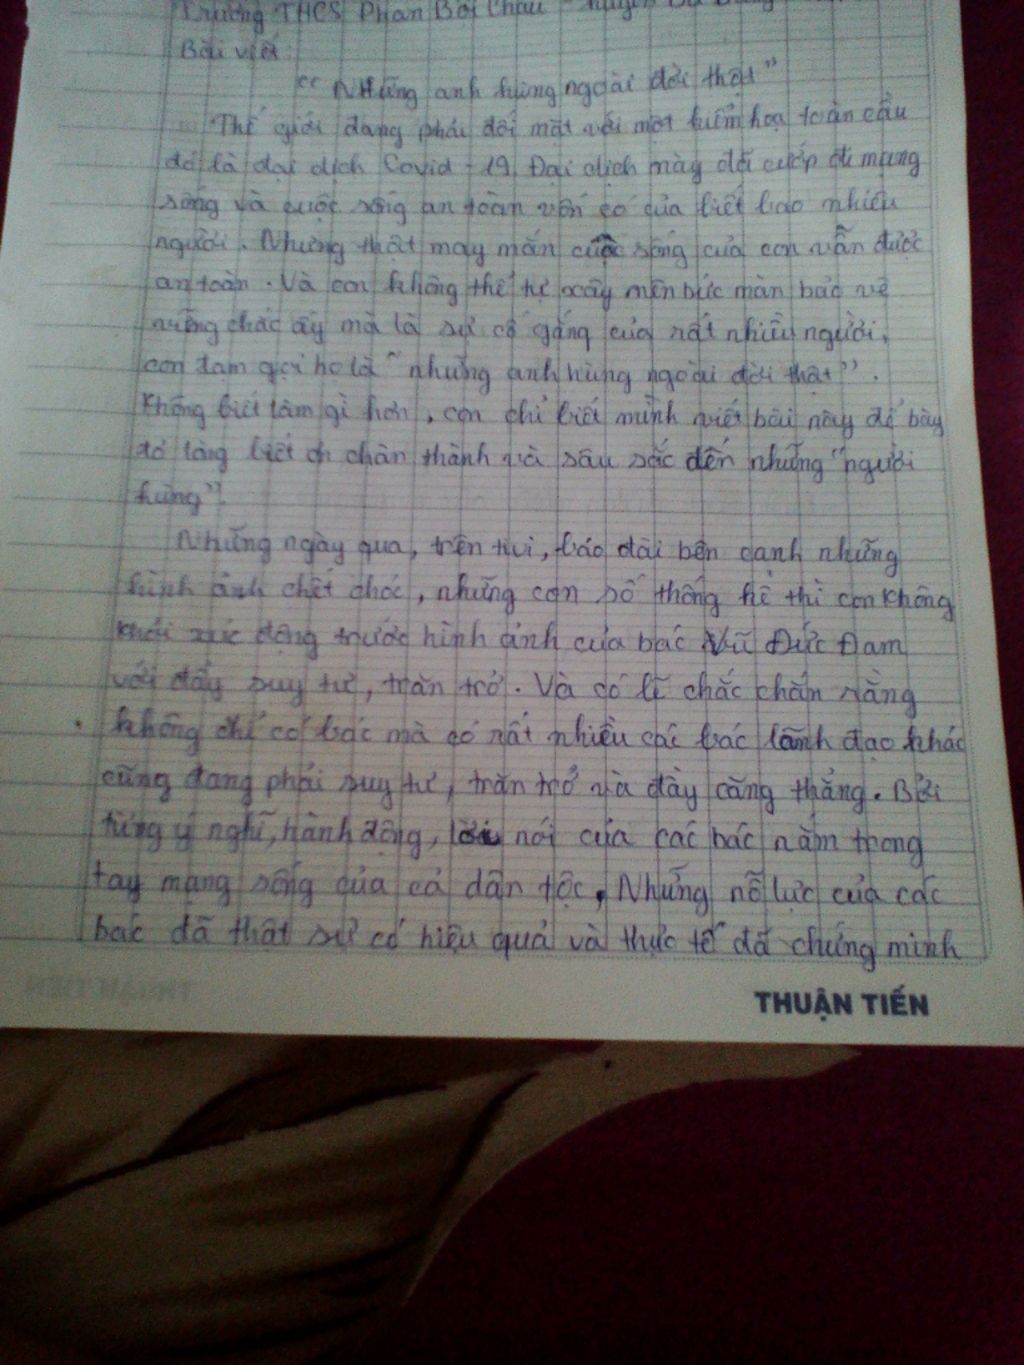 Trường THCS Phan Bội Châu - huyện
Bài viết
"Những anh hùng ngoài đời thật"
Thế giới đang phải đối mặt với một hiểm hoạ toàn cầu
đó là đại dịch Covid - 19. Đại dịch này đã cướp đi mạng
sống và cuộc sống an toàn vốn có của biết bao nhiêu
người. Nhưng thật may mắn cuộc sống của con vẫn được
an toàn. Và con không thể tự xây nên bức màn bảo vệ
vững chắc ấy mà là sự cố gắng của rất nhiều người,
con tạm gọi họ là "những anh hùng ngoài đời thật".
Không biết làm gì hơn, con chỉ biết mình viết bài này để bày
tỏ lòng biết ơn chân thành và sâu sắc đến những "người
hùng".
Những ngày qua, trên tivi, báo đài bên cạnh những
hình ảnh chết chóc, những con số thống kê thì con không
khỏi xúc động trước hình ảnh của bác Vũ Đức Đam
với đầy suy tư, trăn trở. Và có lẽ chắc chắn rằng
không chỉ có bác mà có rất nhiều các bác lãnh đạo khác
cũng đang phải suy tư, trăn trở và đầy căng thẳng. Bởi
từng ý nghĩ, hành động, lời nói của các bác nắm trong
tay mạng sống của cả dân tộc. Những nỗ lực của các
bác đã thật sự có hiệu quả và thực tế đã chứng minh
THUẬN TIẾN